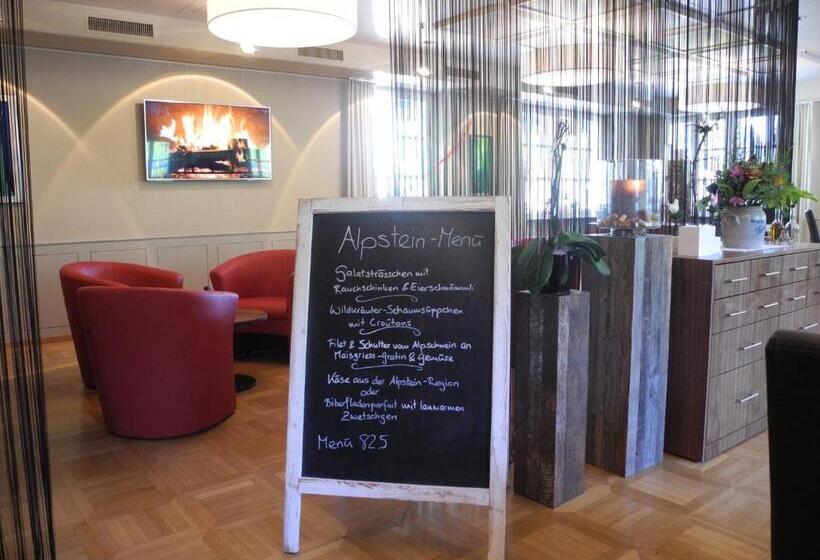 Alpstein-Menü
Salatsträsschen mit
Rauchschinken & Eierschwämmli
Wildkräuter-Schaumsüppchen
mit Croûtons
Filet & Schulter vom Alpschwein an
Maisgriess-Gratin & Gemüse
Käse aus der Alpstein-Region
oder
Biberfladenparfait mit lauwarmen
Zwetschgen
Menü 82.5